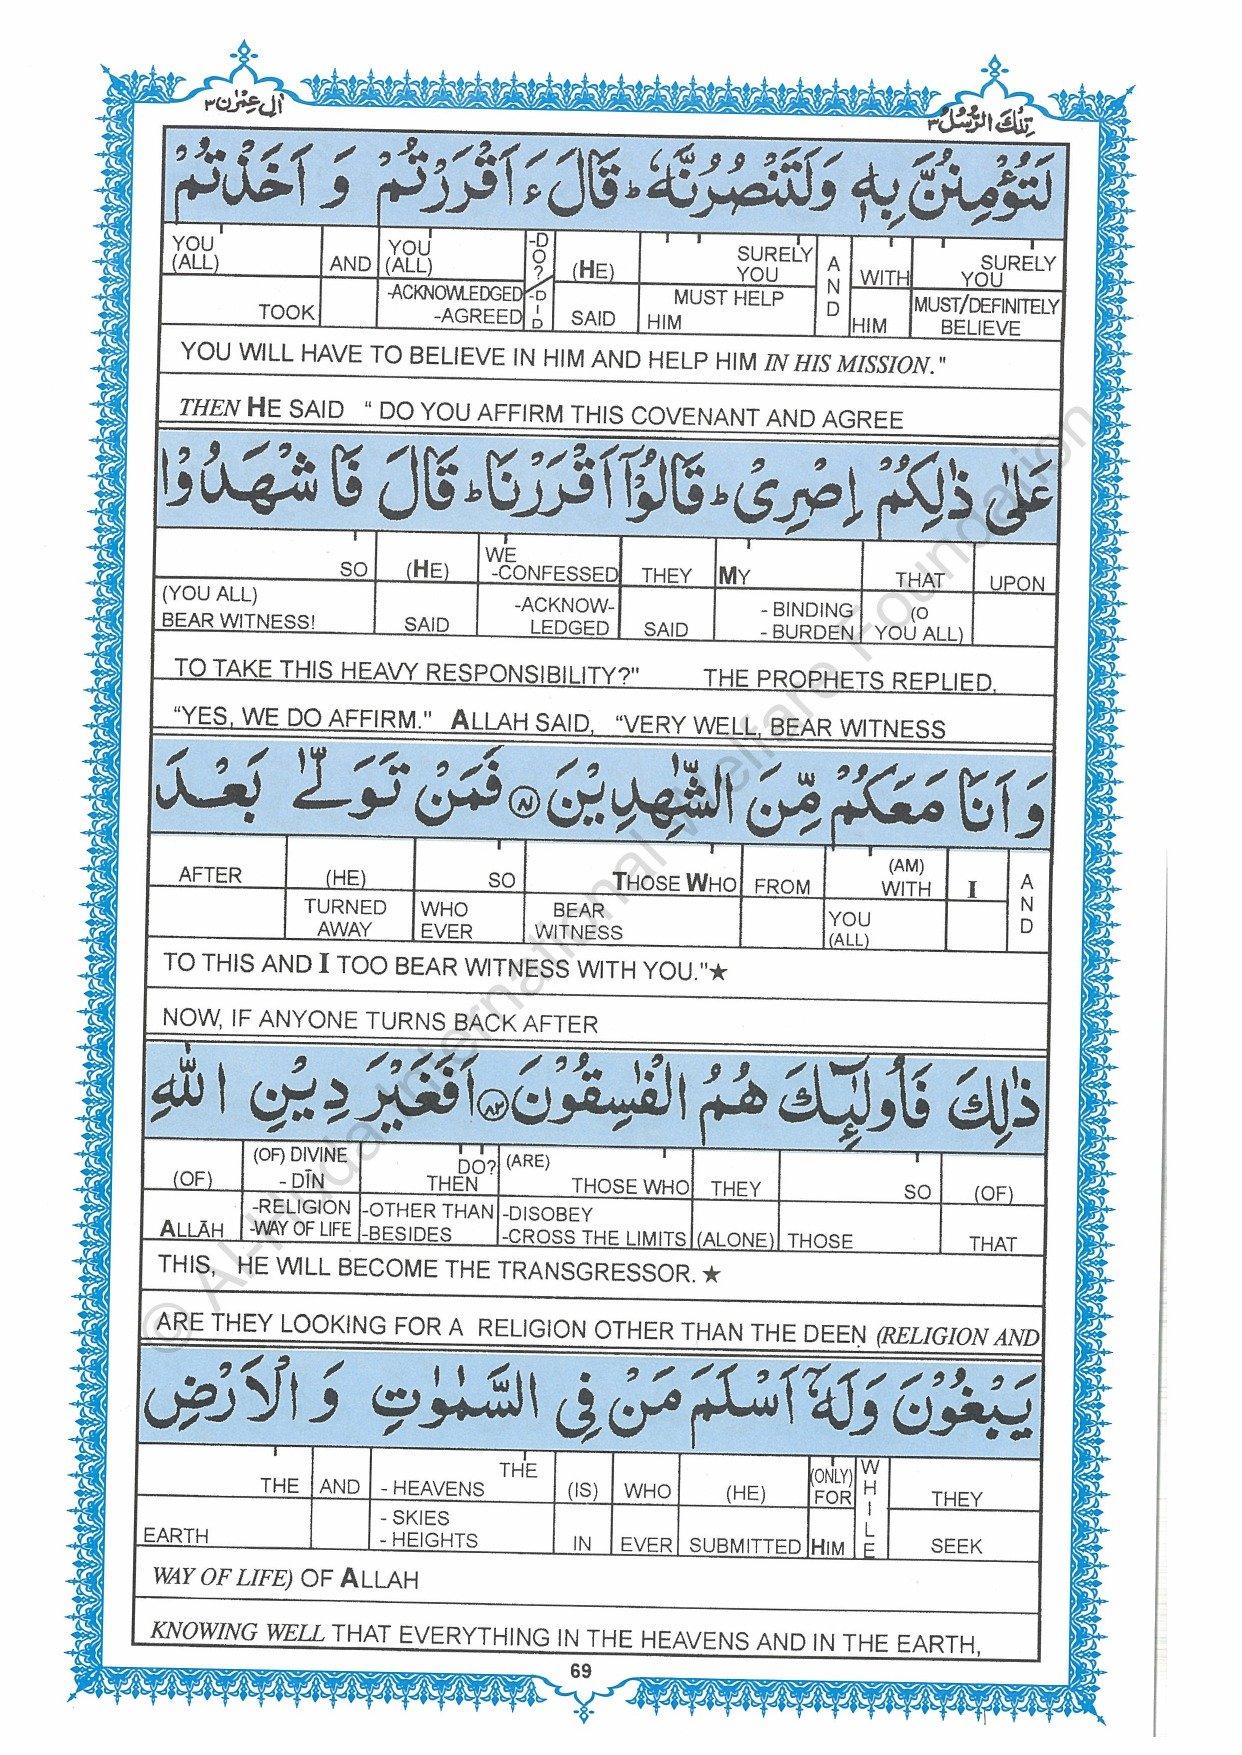 اٰل عِمْرٰن ٣
تِلْكَ الرُّسُلُ ٣
لَتُؤْمِنُنَّ بِهٖ وَلَتَنْصُرُنَّهٗ ؕ قَالَ ءَاَقْرَرْتُمْ وَ اَخَذْتُمْ
YOU (ALL) TOOK | AND | YOU (ALL) -ACKNOWLEDGED -AGREED | -DO? -DID | (HE) SAID | SURELY YOU MUST HELP HIM | AND | WITH HIM | SURELY YOU MUST/DEFINITELY BELIEVE
YOU WILL HAVE TO BELIEVE IN HIM AND HELP HIM IN HIS MISSION."
THEN HE SAID " DO YOU AFFIRM THIS COVENANT AND AGREE
عَلٰى ذٰلِكُمْ اِصْرِىْ ؕ قَالُوْٓا اَقْرَرْنَا ؕ قَالَ فَاشْهَدُوْا
SO (YOU ALL) BEAR WITNESS! | (HE) SAID | WE -CONFESSED -ACKNOW-LEDGED | THEY SAID | MY - BINDING - BURDEN | THAT (O YOU ALL) | UPON
TO TAKE THIS HEAVY RESPONSIBILITY?" THE PROPHETS REPLIED,
"YES, WE DO AFFIRM." ALLAH SAID, "VERY WELL, BEAR WITNESS
وَ اَنَا مَعَكُمْ مِّنَ الشّٰهِدِيْنَ ۝٨١ فَمَنْ تَوَلّٰى بَعْدَ
AFTER | (HE) TURNED AWAY | SO WHO EVER | THOSE WHO BEAR WITNESS | FROM | (AM) WITH YOU (ALL) | I | AND
TO THIS AND I TOO BEAR WITNESS WITH YOU."★
NOW, IF ANYONE TURNS BACK AFTER
ذٰلِكَ فَاُولٰٓئِكَ هُمُ الْفٰسِقُوْنَ ۝٨٢ اَفَغَيْرَ دِيْنِ اللّٰهِ
(OF) ALLĀH | (OF) DIVINE - DĪN -RELIGION -WAY OF LIFE | DO? THEN -OTHER THAN -BESIDES | (ARE) THOSE WHO -DISOBEY -CROSS THE LIMITS | THEY (ALONE) | SO THOSE | (OF) THAT
THIS, HE WILL BECOME THE TRANSGRESSOR. ★
ARE THEY LOOKING FOR A RELIGION OTHER THAN THE DEEN (RELIGION AND
يَبْغُوْنَ وَلَهٗٓ اَسْلَمَ مَنْ فِى السَّمٰوٰتِ وَ الْاَرْضِ
THE EARTH | AND | THE - HEAVENS - SKIES - HEIGHTS | (IS) IN | WHO EVER | (HE) SUBMITTED | (ONLY) FOR HIM | WHILE | THEY SEEK
WAY OF LIFE) OF ALLAH
KNOWING WELL THAT EVERYTHING IN THE HEAVENS AND IN THE EARTH,
69
© Al-Huda International Welfare Foundation